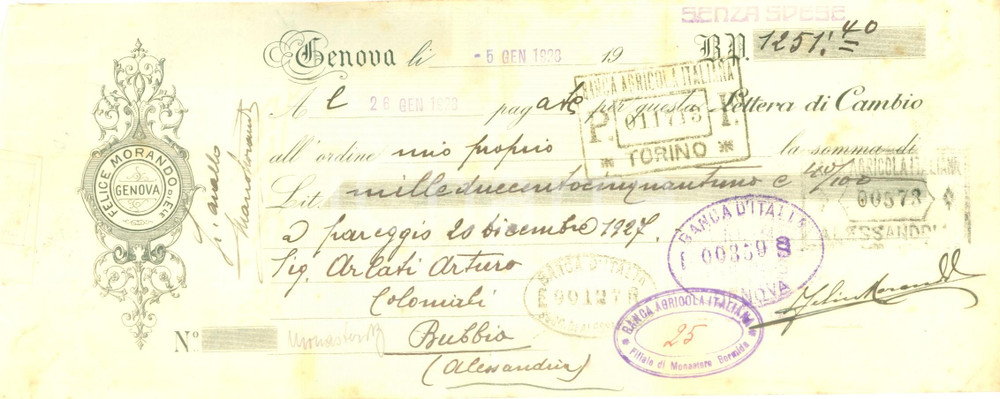 SENZA SPESE
Genova li -5 GEN 1928 19 B.P. 1251.40
Al 28 GEN 1928 pagate per questa Lettera di Cambio
BANCA AGRICOLA ITALIANA
P. 011713 F.
TORINO
all'ordine mio proprio la somma di
Lit. milleduecentocinquantuno e 40/100
AGRICOLA ITALIANA
00573
ALESSANDRIA
FELICE MORANDO
GENOVA
a pareggio 20 dicembre 1927.
Sig. Arlati Arturo
Coloniali
Bubbio
(Alessandria)
BANCA D'ITALIA
00359
GENOVA
BANCA D'ITALIA
901276
BANCA AGRICOLA ITALIANA
25
Filiale di Monastero Bormida
Felice Morando
No